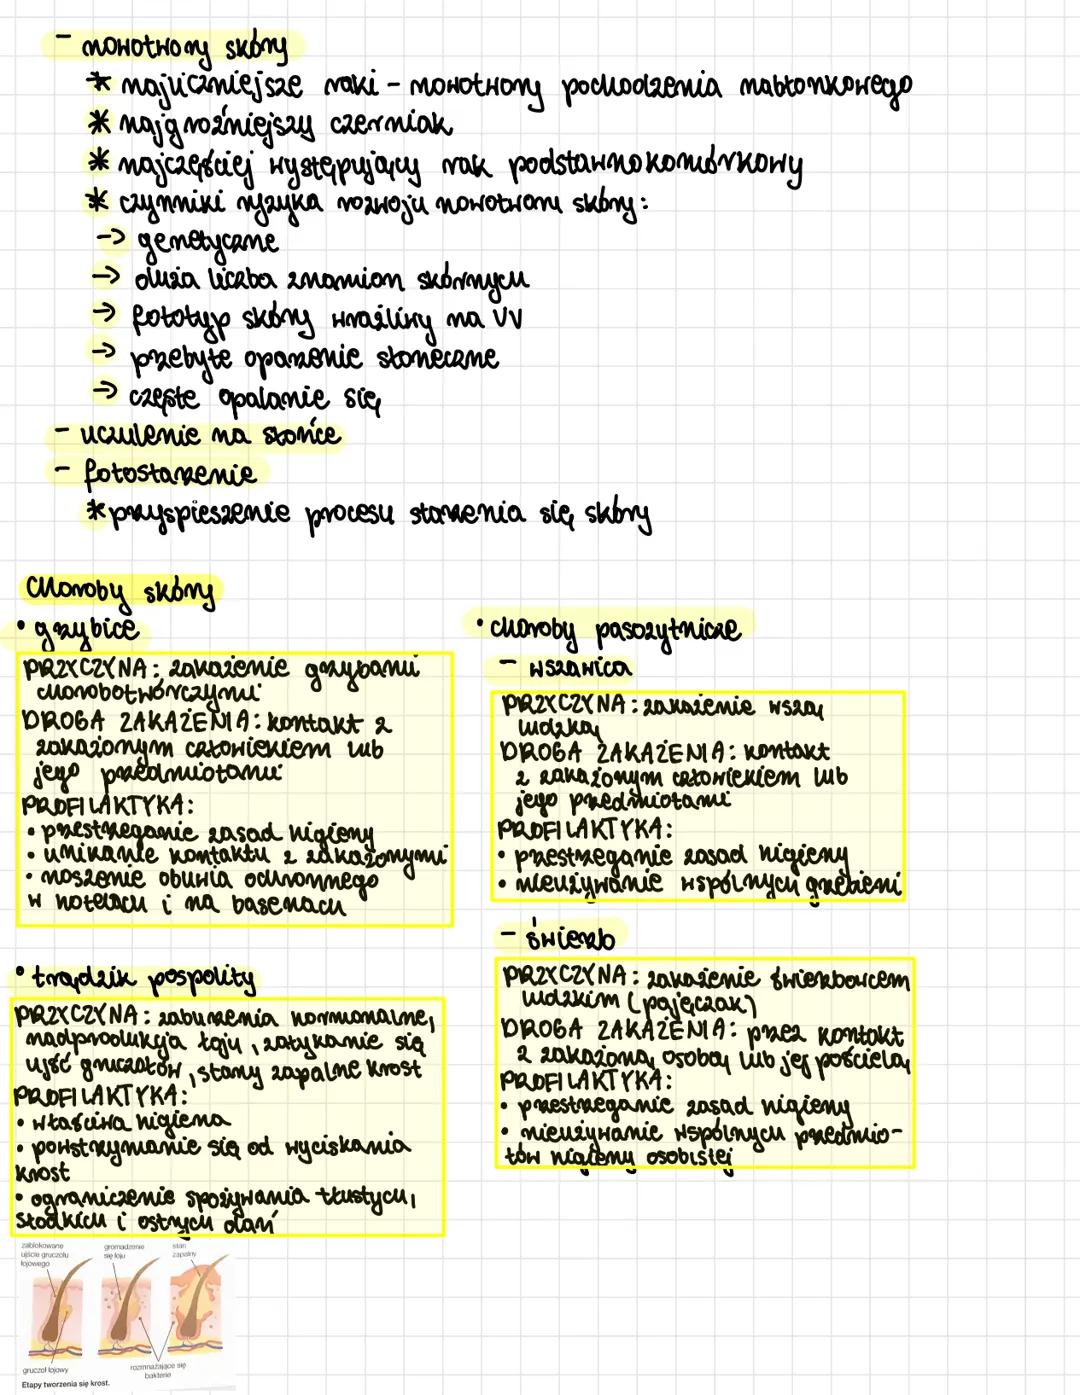 - nowotwory skóry
* najliczniejsze raki - nowotwory pochodzenia nabłonkowego
* najgroźniejszy czerniak
* najczęściej występujący rak podstawnokomórkowy
* czynniki ryzyka rozwoju nowotworu skóry:
→ genetyczne
→ duża liczba znamion skórnych
→ fototyp skóry wrażliwy na UV
→ przebyte oparzenie słoneczne
→ częste opalanie się
- uczulenie na słońce
- fotostarzenie
* przyspieszenie procesu starzenia się skóry
Choroby skóry
• grzybice
PRZYCZYNA: zakażenie grzybami
chorobotwórczymi
DROGA ZAKAŻENIA: kontakt z
zakażonym człowiekiem lub
jego przedmiotami
PROFILAKTYKA:
• przestrzeganie zasad higieny
• unikanie kontaktu z zakażonymi
• noszenie obuwia ochronnego
w hotelach i na basenach
• trądzik pospolity
PRZYCZYNA: zaburzenia hormonalne,
nadprodukcja łoju, zatykanie się
ujść gruczołów, stany zapalne krost
PROFILAKTYKA:
• właściwa higiena
• powstrzymanie się od wyciskania
krost
• ograniczenie spożywania tłustych,
słodkich i ostrych dań
zablokowane
ujście gruczołu
łojowego
gromadzenie
się łoju
stan
zapalny
gruczoł łojowy
rozmnażające się
bakterie
Etapy tworzenia się krost.
• choroby pasożytnicze
- wszawica
PRZYCZYNA: zakażenie wszą
ludzką
DROGA ZAKAŻENIA: kontakt
z zakażonym człowiekiem lub
jego przedmiotami
PROFILAKTYKA:
• przestrzeganie zasad higieny
• nieużywanie wspólnych grzebieni
- świerzb
PRZYCZYNA: zakażenie świerzbowcem
ludzkim (pajęczak)
DROGA ZAKAŻENIA: przez kontakt
z zakażoną osobą lub jej pościelą
PROFILAKTYKA:
• przestrzeganie zasad higieny
• nieużywanie wspólnych przedmio-
tów higieny osobistej